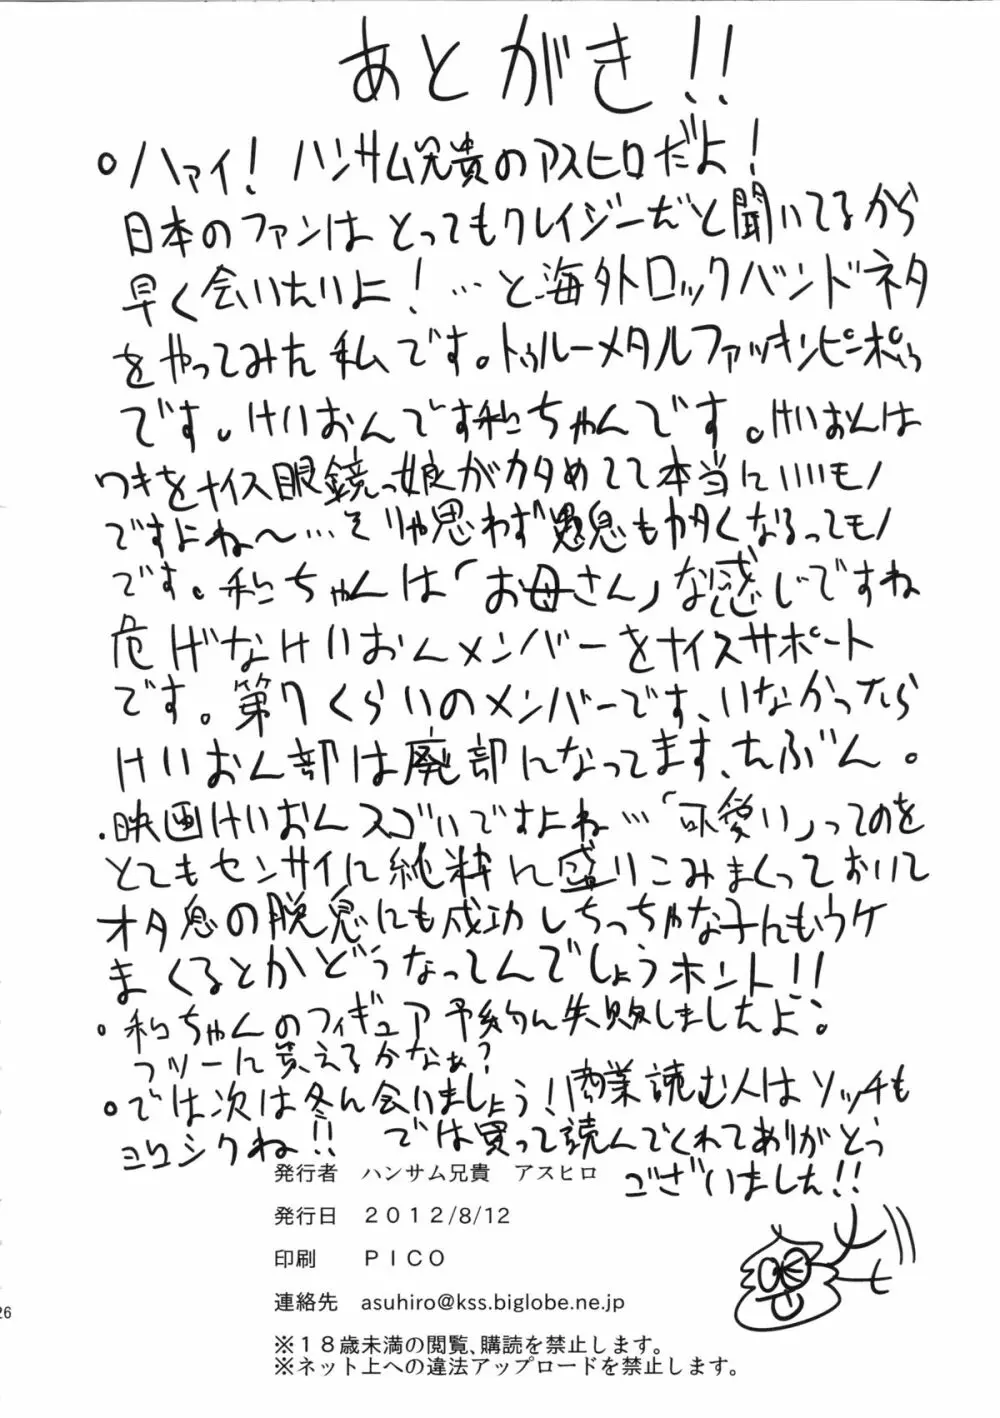 あとがき!!
○ハァイ!ハンサム兄貴のアスヒロだよ!
日本のファンはとってもクレイジーだと聞いてるから
早く会いたいよ!…と海外ロックバンドネタ
をやってみた私です。トゥルーメタルファッキンピンポゥ
です。けいおんです和ちゃんです。けいおんは
ワキをナイス眼鏡っ娘がカタめてて本当にいいモノ
ですよね〜…そりゃ思わず愚息もカタくなるってモノ
です。和ちゃんは「お母さん」な感じですね
危げなけいおんメンバーをナイスサポート
です。第7くらいのメンバーです、いなかったら
けいおん部は廃部になってます、たぶん。
・映画けいおんスゴいですよね…「可愛い」ってのを
とてもセンサイに純粋に盛りこみまくっておいて
オタ息の脱息にも成功しちっちゃな子んもウケ
まくるとかどうなってんでしょうホント!!
○和ちゃんのフィギュア予約ん失敗しましたよ。
フツーに貰えるかなぁ?
○では次は冬ん会いましょう!!商業読む人はソッチも
ヨロシクね!! では買って読んでくれてありがとう
ございました!!
発行者 ハンサム兄貴 アスヒロ
発行日 2012/8/12
印刷 PICO
連絡先 asuhiro@kss.biglobe.ne.jp
※18歳未満の閲覧、購読を禁止します。
※ネット上への違法アップロードを禁止します。
26